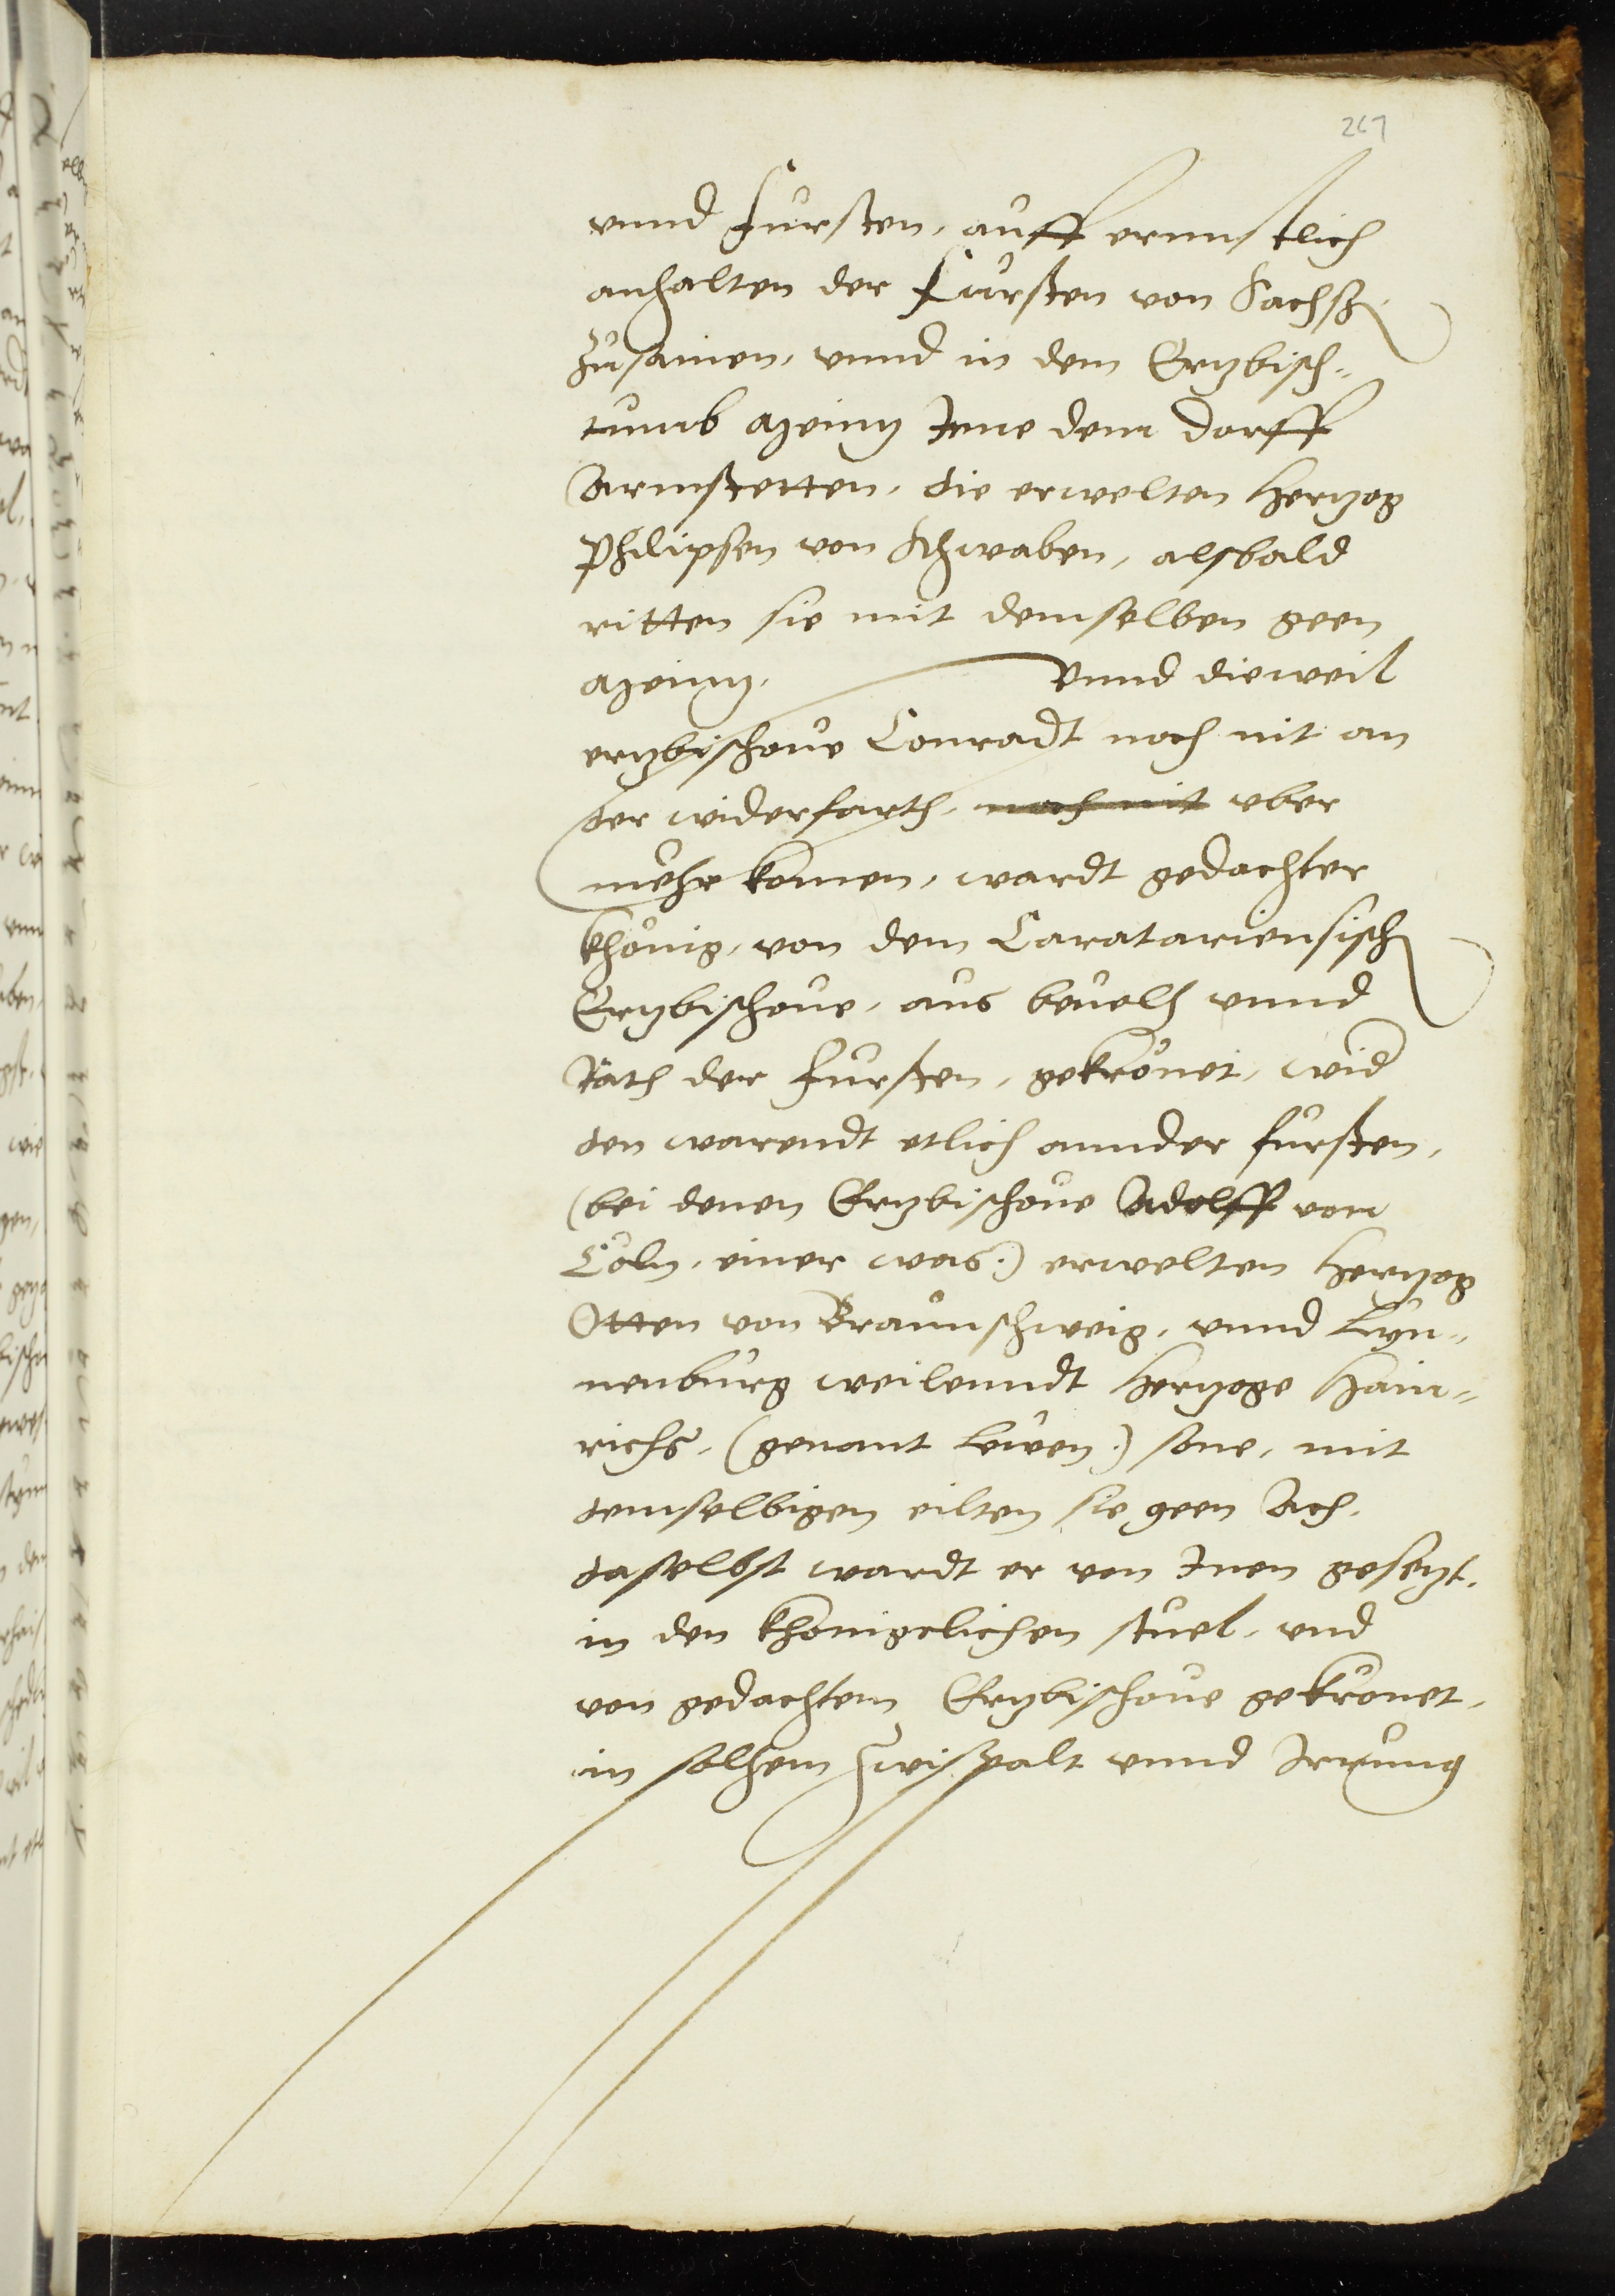 267
vnnd Fursten, auff ernnstlich
anhalten der Fursten von Sachssen
zusamen, vnnd in dem Ertzbisch-
tumb Meintz Inne dem Dorff
Armstetten, die erwelten Hertzog
Philipsen von Schwaben, alsbald
ritten sie mit demselben geen
Meintz. Vnnd dieweil
ertzbischoue Conradt noch nit an
der widerfarth, noch nit vber
mehr komen, wardt gedachter
khönig, von dem Caratariensisch
Ertzbischoue, aus beuelh vnnd
Rath der Fursten, gekrönet, wid
den warendt etlich annder fursten,
(bei denen Ertzbischoue Adolff von
Cöln, einer was:) erwelten Hertzog
Otten von Braunschweig, vnnd Lyn-
nenburg weilenndt Hertzoge Hain-
richs, (genant Lewen:) sone, mit
demselbigen eilten sie geen Ach,
daselbst wardt er von Inen gesetzt,
in den khönigelichen stuel, vnd
von gedachtem Ertzbischoue gekrönet,
in solhem zwispalt vnnd Irrung